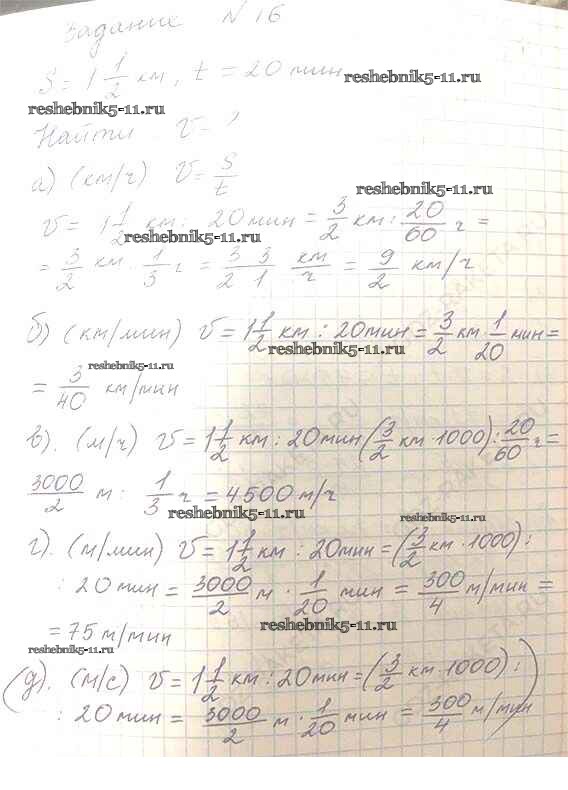 Задание N 16
S = 1 1/2 км, t = 20 мин
reshebnik5-11.ru
reshebnik5-11.ru
Найти v = ?
а) (км/ч) v = S/t
reshebnik5-11.ru
v = 1 1/2 км : 20 мин = 3/2 км : 20/60 ч =
reshebnik5-11.ru
= 3/2 км · 1/3 ч = 3/2 · 3/1 км/ч = 9/2 км/ч
б) (км/мин) v = 1 1/2 км : 20 мин = 3/2 км · 1/20 мин =
reshebnik5-11.ru
reshebnik5-11.ru
= 3/40 км/мин
в). (м/ч) v = 1 1/2 км : 20 мин (3/2 км · 1000) : 20/60 ч =
3000/2 м : 1/3 ч = 4500 м/ч
reshebnik5-11.ru
reshebnik5-11.ru
г). (м/мин) v = 1 1/2 км : 20 мин = (3/2 км · 1000) :
: 20 мин = 3000/2 м · 1/20 мин = 300/4 м/мин =
reshebnik5-11.ru
= 75 м/мин
reshebnik5-11.ru
(д). (м/с) v = 1 1/2 км : 20 мин = (3/2 км · 1000) :
: 20 мин = 3000/2 м · 1/20 мин = 300/4 м/мин)